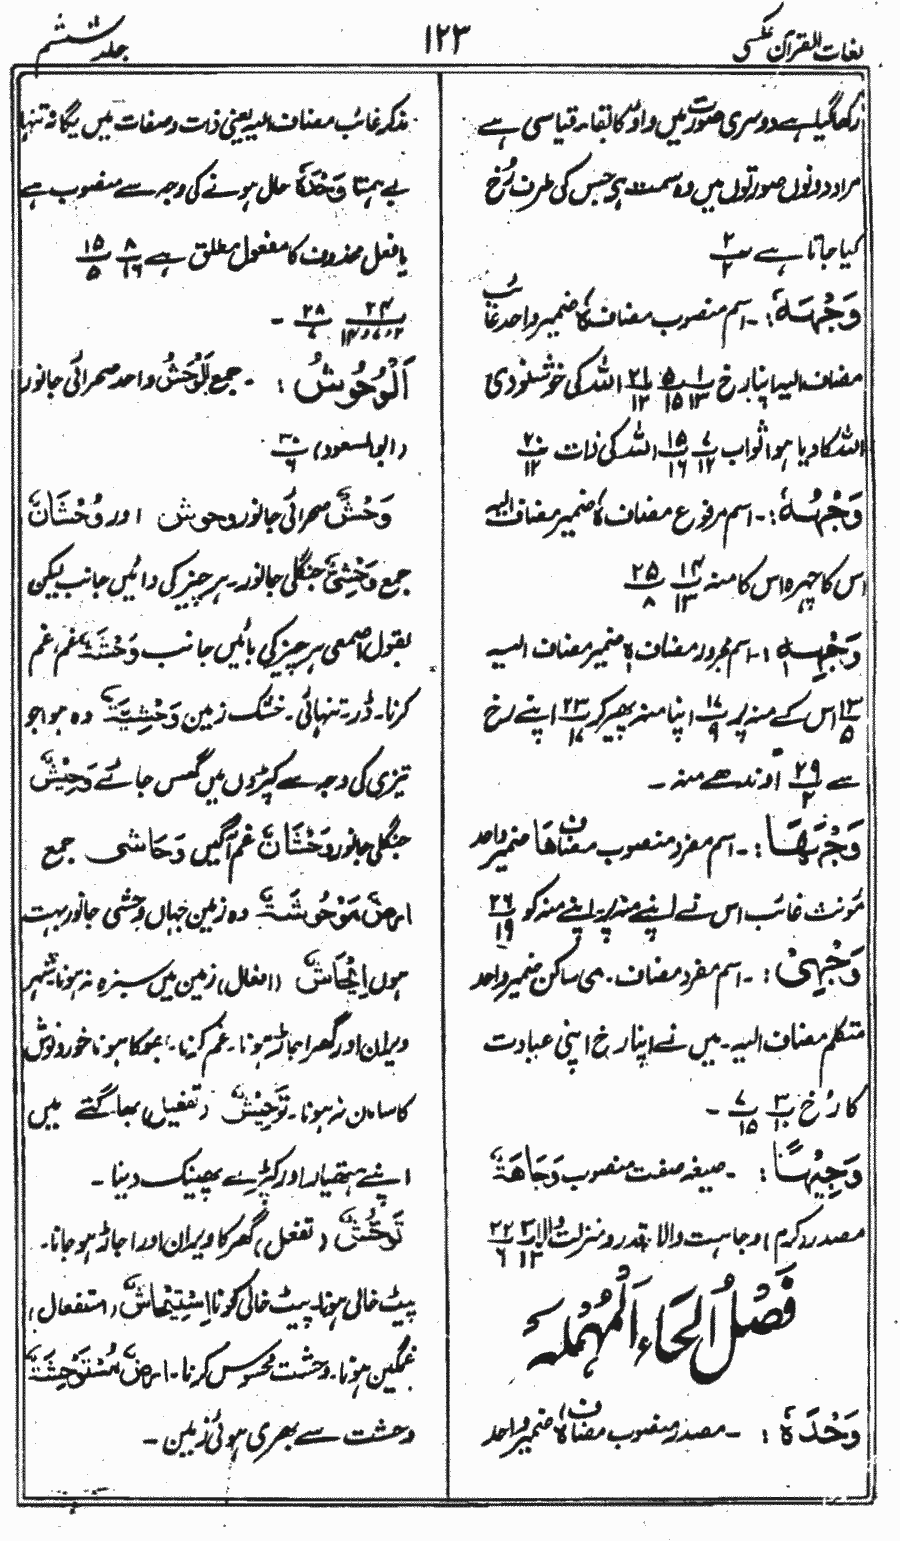 لغات القرآن عکسی
۱۲۳
جلد ششم
رکھا گیا ہے دوسری صورت میں واؤ کا بقاء قیاسی ہے
مراد دونوں صورتوں میں وہ سمت ہی جس کی طرف رُخ
کیا جاتا ہے ۲/۲
وَجْهَهٗ: ۔ اسم منصوب مضاف ہٗ ضمیر واحد غائب
مضاف الیہ اپنا رخ ۱/۱۳ ۵/۱۵ ۲۱/۱۲ اللہ کی خوشنودی
اللہ کا دیا ہوا ثواب ۷/۱۲ ۱۵/۱۶ اللہ کی ذات ۲۰/۱۲
وَجْهُهٗ: ۔ اسم مرفوع مضاف ہٗ ضمیر مضاف الیہ
اس کا چہرہ اس کا منہ ۱۴/۱۳ ۲۵/۸
وَجْهِهٖ: ۔ اسم مجرور مضاف ہٖ ضمیر مضاف الیہ
۱۳/۵ اس کے منہ پر ۱۷/۹ اپنا منہ پھیر کر ۲۳/۱۷ اپنے رخ
سے ۲۹/۲ اوندھے منہ ۔
وَجْهَهَا: ۔ اسم مفرد منصوب مضاف هَا ضمیر واحد
مؤنث غائب اس نے اپنے منہ پر اپنے منہ کو ۲۶/۱۹
وَجْهِیَ: ۔ اسم مفرد مضاف ۔ ی ساکن ضمیر واحد
متکلم مضاف الیہ ۔ میں نے اپنا رخ اپنی عبادت
کا رُخ ۳/۱۰ ۷/۱۵ ۔
وَجِيْهًا: ۔ صیغہ صفت منصوب وَجَاهَةٌ
مصدر (کرم) وجاہت والا قدر و منزلت والا ۳/۱۳ ۲۲/۶
فَصْلُ الْحَاءِ الْمُهْمَلَهْ
وَحْدَهٗ: ۔ مصدر منصوب مضاف ہٗ ضمیر واحد
مذکر غائب مضاف الیہ یعنی ذات و صفات میں یگانہ تنہا
بے ہمتا وَحْدَهٗ حال ہونے کی وجہ سے منصوب ہے
یا فعل محذوف کا مفعول مطلق ہے ۸/۱۶ ۱۵/۵
۲۴/۲،۷،۱۲ ۲۸/۷ ۔
اَلْوُحُوْشُ: ۔ جمع اَلْوَحْشُ واحد صحرائی جانور
(ابوالسعود) ۳۰/۶
وَحْشٌ صحرائی جانور وحوش اور وُحْشَانٌ
جمع وَحْشِیٌّ جنگلی جانور ۔ ہر چیز کی دائیں جانب لیکن
بقول اصمعی ہر چیز کی بائیں جانب وَحْشَةٌ غم، غم
کرنا ۔ ڈر ۔ تنہائی ۔ خشک زمین وَحْشِيَّةٌ وہ ہوا جو
تیزی کی وجہ سے کپڑوں میں گھس جائے وَحِيْشٌ
جنگلی جانور وَحْشَانٌ غم آگیں وَحَاشٰی جمع
ارضٌ مَوْحُوْشَةٌ وہ زمین جہاں وحشی جانور بہت
ہوں اِيْحَاشٌ (افعال) زمین میں سبزہ نہ ہونا شہر
ویران اور گھر اجاڑ ہونا ۔ غم کرنا ۔ بھوکا ہونا خوردونوش
کا سامان نہ ہونا ۔ تَوْحِيْشٌ (تفعیل) بھاگتے میں
اپنے ہتھیار اور کپڑے پھینک دینا ۔
تَوَحُّشٌ (تفعل) گھر کا ویران اور اجاڑ ہو جانا ۔
پیٹ خالی ہونا ۔ پیٹ خالی کرنا اِسْتِيْحَاشٌ (استفعال)
غمگین ہونا ۔ وحشت محسوس کرنا ۔ ارضٌ مُسْتَوْحِشَةٌ
وحشت سے بھری ہوئی زمین ۔